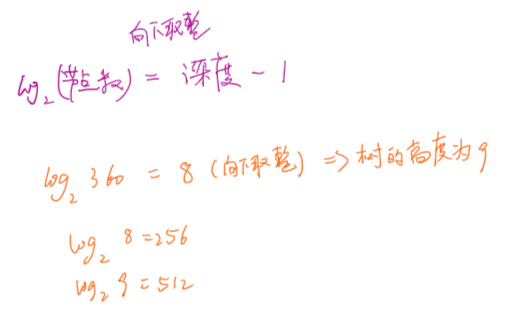 向下取整
log₂(节点数) = 深度 - 1
log₂ 360 = 8 (向下取整) => 树的高度为9
log₂ 8 = 256
log₂ 9 = 512